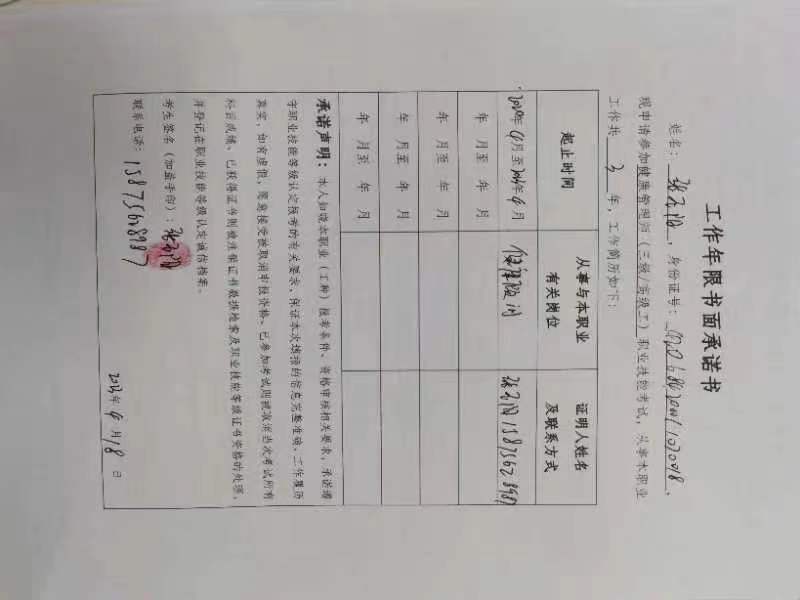 工作年限书面承诺书
姓名：，身份证号：，
现申请参加健康管理师（三级/高级工）职业技能考试，从事本职业
工作共 3 年，工作简历如下：
起止时间 从事与本职业有关岗位 证明人姓名及联系方式
2020年4月至年4月 健康顾问 15875628987
年 月至 年 月
年 月至 年 月
年 月至 年 月
承诺声明：本人知晓本职业（工种）报考条件、资格审核相关要求，承诺遵
守职业技能等级认定报考的有关要求，保证本次填报的信息完整准确、工作履历
真实，如有虚假，愿意接受被取消审报资格、已参加考试则被取消当次考试所有
科目成绩、已获得证书则被注销证书数据检索及职业技能等级证书资格的处理，
并登记在职业技能等级认定诚信档案。
考生签名（加盖手印）：
联系电话：15875628987
2023年4月18日